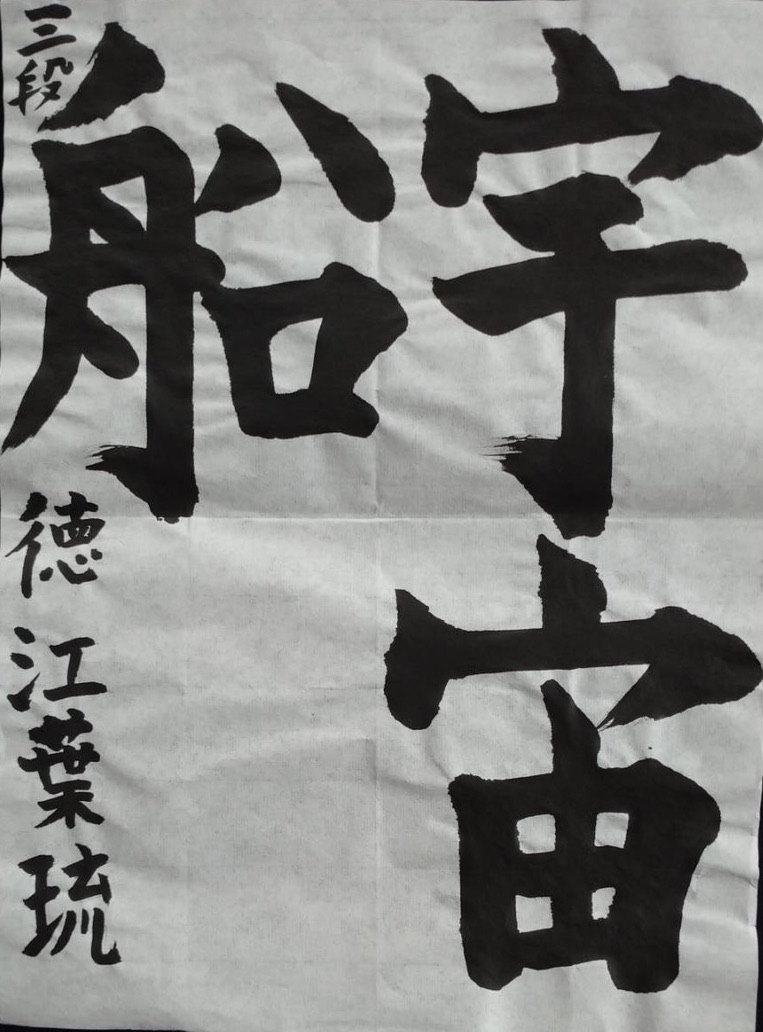 宇宙
船
三段 徳江葉琉